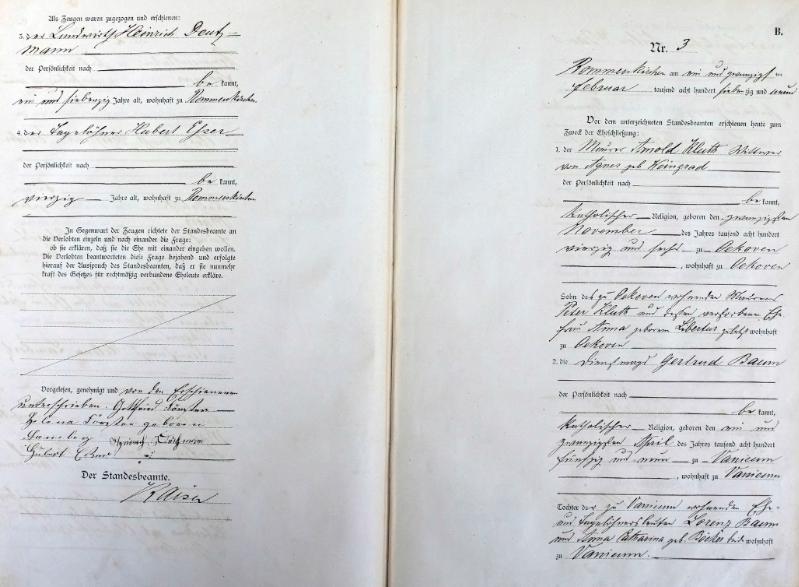 Als Zeugen waren zugezogen und erschienen:
3. der Landwirth Heinrich Deutz-
mann
der Persönlichkeit nach
be kannt,
ein und siebenzig Jahre alt, wohnhaft zu Rommerskirchen
4. der Tagelöhner Hubert Esser
der Persönlichkeit nach
be kannt,
vierzig Jahre alt, wohnhaft zu Rommerskirchen
In Gegenwart der Zeugen richtete der Standesbeamte an
die Verlobten einzeln und nach einander die Frage:
ob sie erklären, daß sie die Ehe mit einander eingehen wollen.
Die Verlobten beantworteten diese Frage bejahend und erfolgte
hierauf der Ausspruch des Standesbeamten, daß er sie nunmehr
kraft des Gesetzes für rechtmäßig verbundene Eheleute erkläre.
Vorgelesen, genehmigt und von den Erschienenen
unterschrieben. Gottfried
geboren
Heinrich
Hubert Esser
Der Standesbeamte.
Kaiser
B.
Nr. 3
Rommerskirchen am ein und zwanzigsten
Februar tausend acht hundert siebenzig und neun
Vor dem unterzeichneten Standesbeamten erschienen heute zum
Zweck der Eheschließung:
1. der Maurer Arnold Kluth Wittwer
von Agnes geb Weingrad
der Persönlichkeit nach
be kannt,
katholischer Religion, geboren den zwanzigsten
November des Jahres tausend acht hundert
vierzig und sechs zu Oekoven
, wohnhaft zu Oekoven
Sohn des zu Oekoven wohnenden Maurers
Peter Kluth und dessen verstorbenen Ehe-
frau Anna geborene Libertus zuletzt wohnhaft
zu Oekoven
2. die Dienstmagd Gertrud Baum
der Persönlichkeit nach
be kannt,
katholischer Religion, geboren den ein und
zwanzigsten April des Jahres tausend acht hundert
fünfzig und neun zu Vanicum
, wohnhaft zu Vanicum
Tochter der zu Vanicum wohnenden Ehe-
und Tagelöhnersleuten Lorenz Baum
und Anna Catharina geb. beide wohnhaft
zu Vanicum.